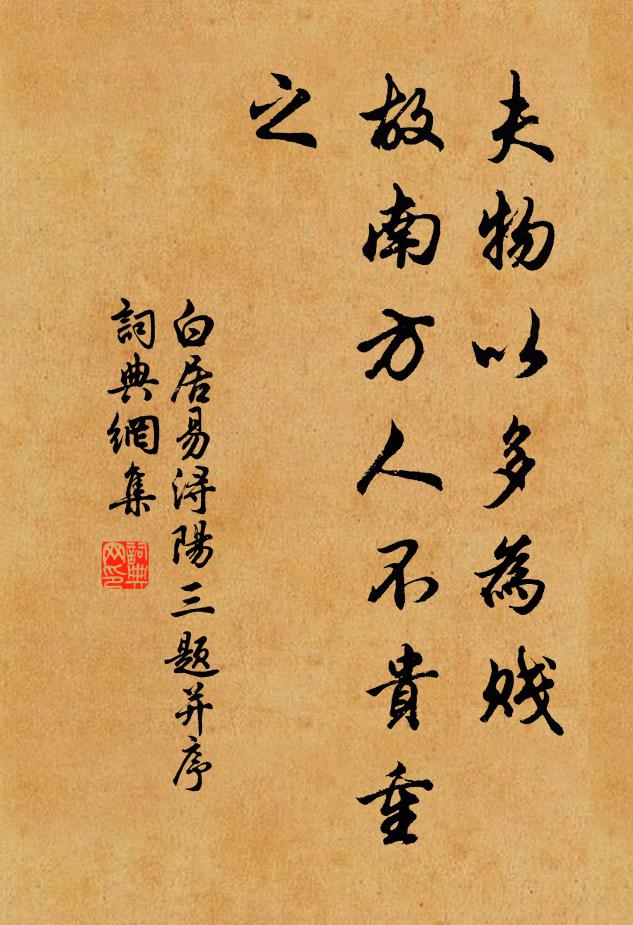 夫物以多為賤
故南方人不貴重
之
白居易潯陽三題并序
詞典網集
詞典网印